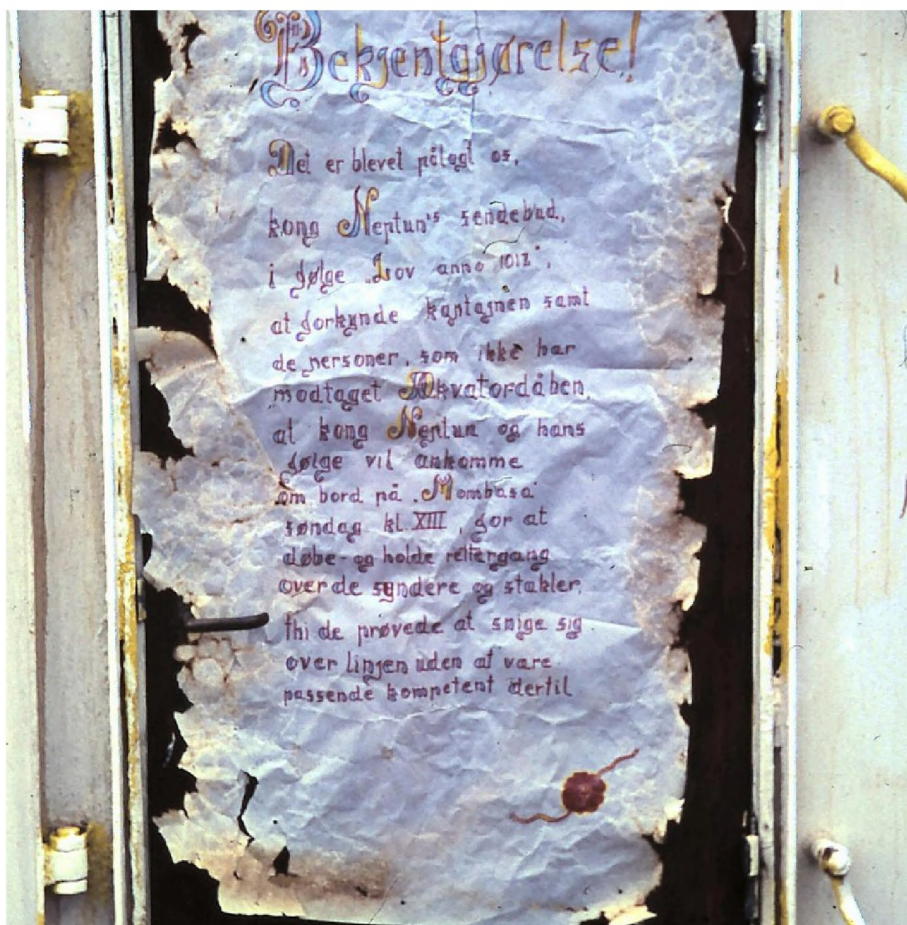 Bekjentgjørelse!
Det er blevet pålagt os,
kong Neptun's sendebud,
i følge „Lov anno 1012",
at forkynde kaptajnen samt
de personer, som ikke har
modtaget Ækvatordåben,
at kong Neptun og hans
følge vil ankomme
om bord på „Mombasa"
søndag kl. XIII, for at
døbe- og holde rettergang
over de syndere og stakler,
thi de prøvede at snige sig
over linjen uden at være
passende kompetent dertil